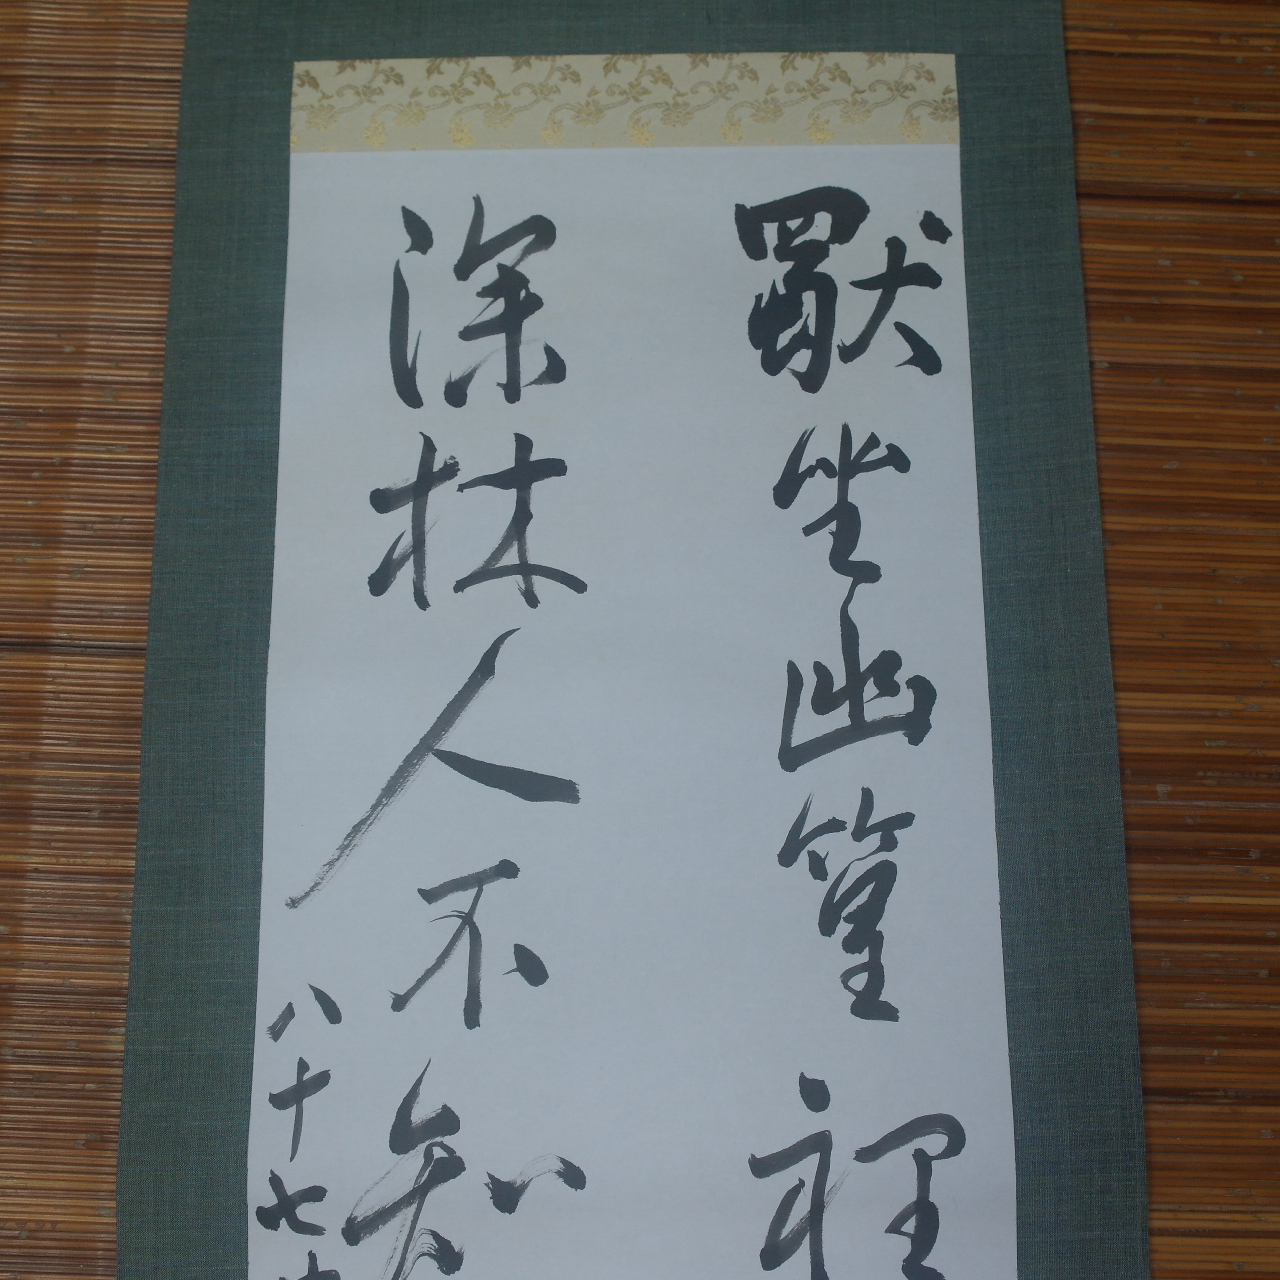 獨坐幽篁裡
深林人不知
八十七